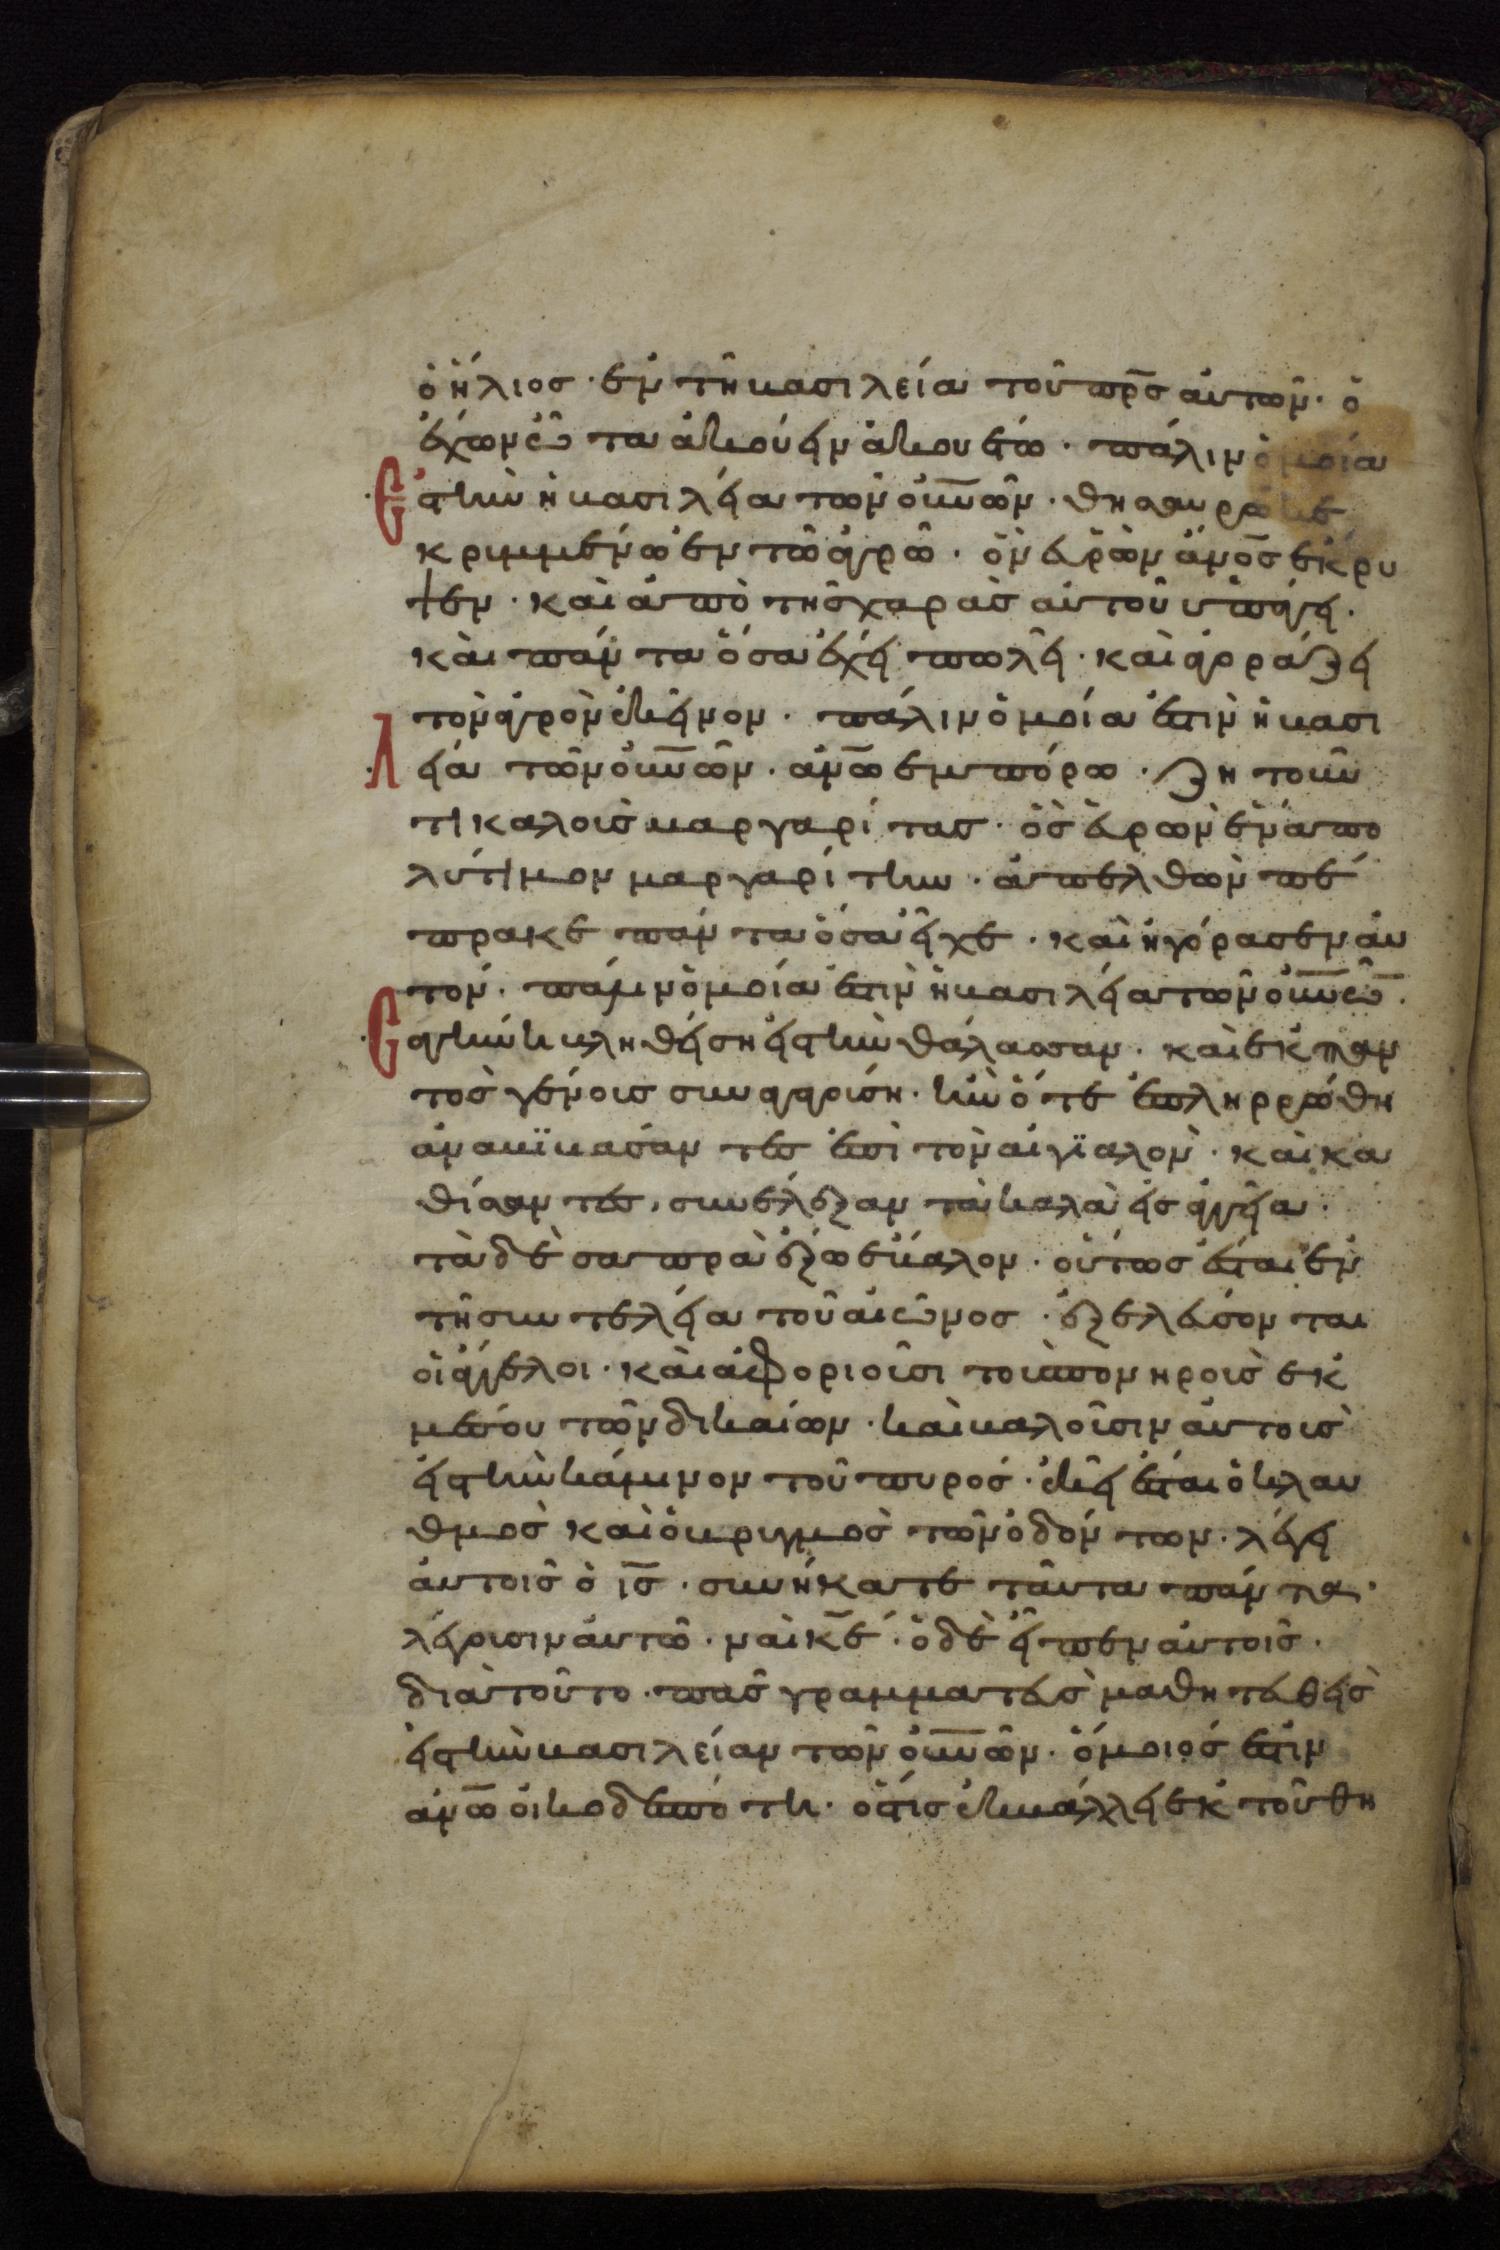 ὁ ἥλιος · ἐν τῆ βασιλεία τοῦ πρ̅ς αὐτῶν · ὁ
ἔχων ὦτα ἀκούειν ἀκουέτω · πάλιν ὁμοία
Ἐστὶν ἡ βασιλεία τῶν οὐν̅ῶν · θησαυρῶ κε
κριμμένω ἐν τῶ ἀγρῶ · ὃν εὑρὼν ἀνο̅ς ἔκρυ
ψεν · καὶ ἀπὸ τῆς χαρᾶς αὐτοῦ ὑπάγει ·
καὶ πάντα ὅσα ἔχει πωλεῖ · καὶ ἀγοράζει
τὸν ἀγρὸν ἐκεῖνον · πάλιν ὁμοία ἐστὶν ἡ βασι
Λεία τῶν οὐν̅ῶν · ἀνω̅ ἐμπόρω · ζητοῦν
τι καλοὺς μαργαρίτας · ὃς εὑρὼν ἕνα πο
λύτιμον μαργαρίτην · ἀπελθὼν πέ
πρακε πάντα ὅσα εἶχε · καὶ ἠγόρασεν αὐ
τόν · πάλιν ὁμοία ἐστὶν ἡ βασιλεία τῶν οὐν̅ῶ̅ ·
Σαγήνη βληθείση εἰς τὴν θάλασσαν · καὶ ἐκ παν
τὸς γένους συναγαγούση · ἣν ὅτε ἐπληρώθη
ἀναβιβάσαντες ἐπὶ τὸν αἰγιαλὸν · καὶ κα
θίσαντες, συνέλεξαν τὰ καλὰ εἰς ἀγγεῖα ·
τὰ δὲ σαπρὰ ἔξω ἔβαλον · οὕτως ἔσται ἐν
τῆ συντελεία τοῦ αἰῶνος · ἐξελεύσονται
οἱ ἄγγελοι · καὶ ἀφοριοῦσι τοὺς πονηροὺς ἐκ
μέσου τῶν δικαίων · καὶ βαλοῦσιν αὐτοὺς
εἰς τὴν κάμινον τοῦ πυρός · ἐκεῖ ἔσται ὁ κλαυ
θμὸς καὶ ὁ βρυγμὸς τῶν ὀδόντων · λέγει
αὐτοῖς ὁ ι̅ς · συνήκατε ταῦτα πάντα ·
λέγουσιν αὐτῶ · ναὶ κ̅έ · ὁ δὲ εἶπεν αὐτοῖς ·
διὰ τοῦτο · πᾶς γραμματεὺς μαθητευθεὶς
εἰς τὴν βασιλείαν τῶν οὐν̅ῶν · ὅμοιός ἐστιν
ἀνω̅ οἰκοδεσπότη · ὅστις ἐκβάλλει ἐκ τοῦ θη